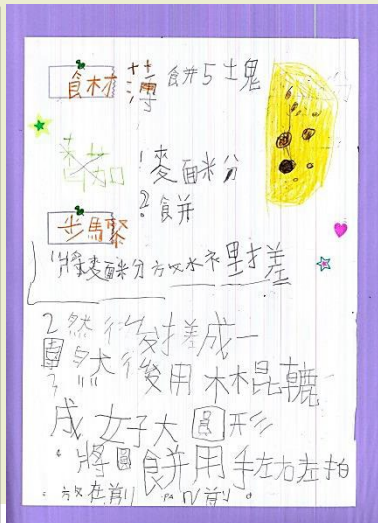 食材 薄餅5塊
1 麥面粉
2 餅
步驟
1 將麥面粉放水裡搓
2 然後搓成一
團
3 然後用木棍轆
成好大圓形
將圓餅用手左右左拍
放在前